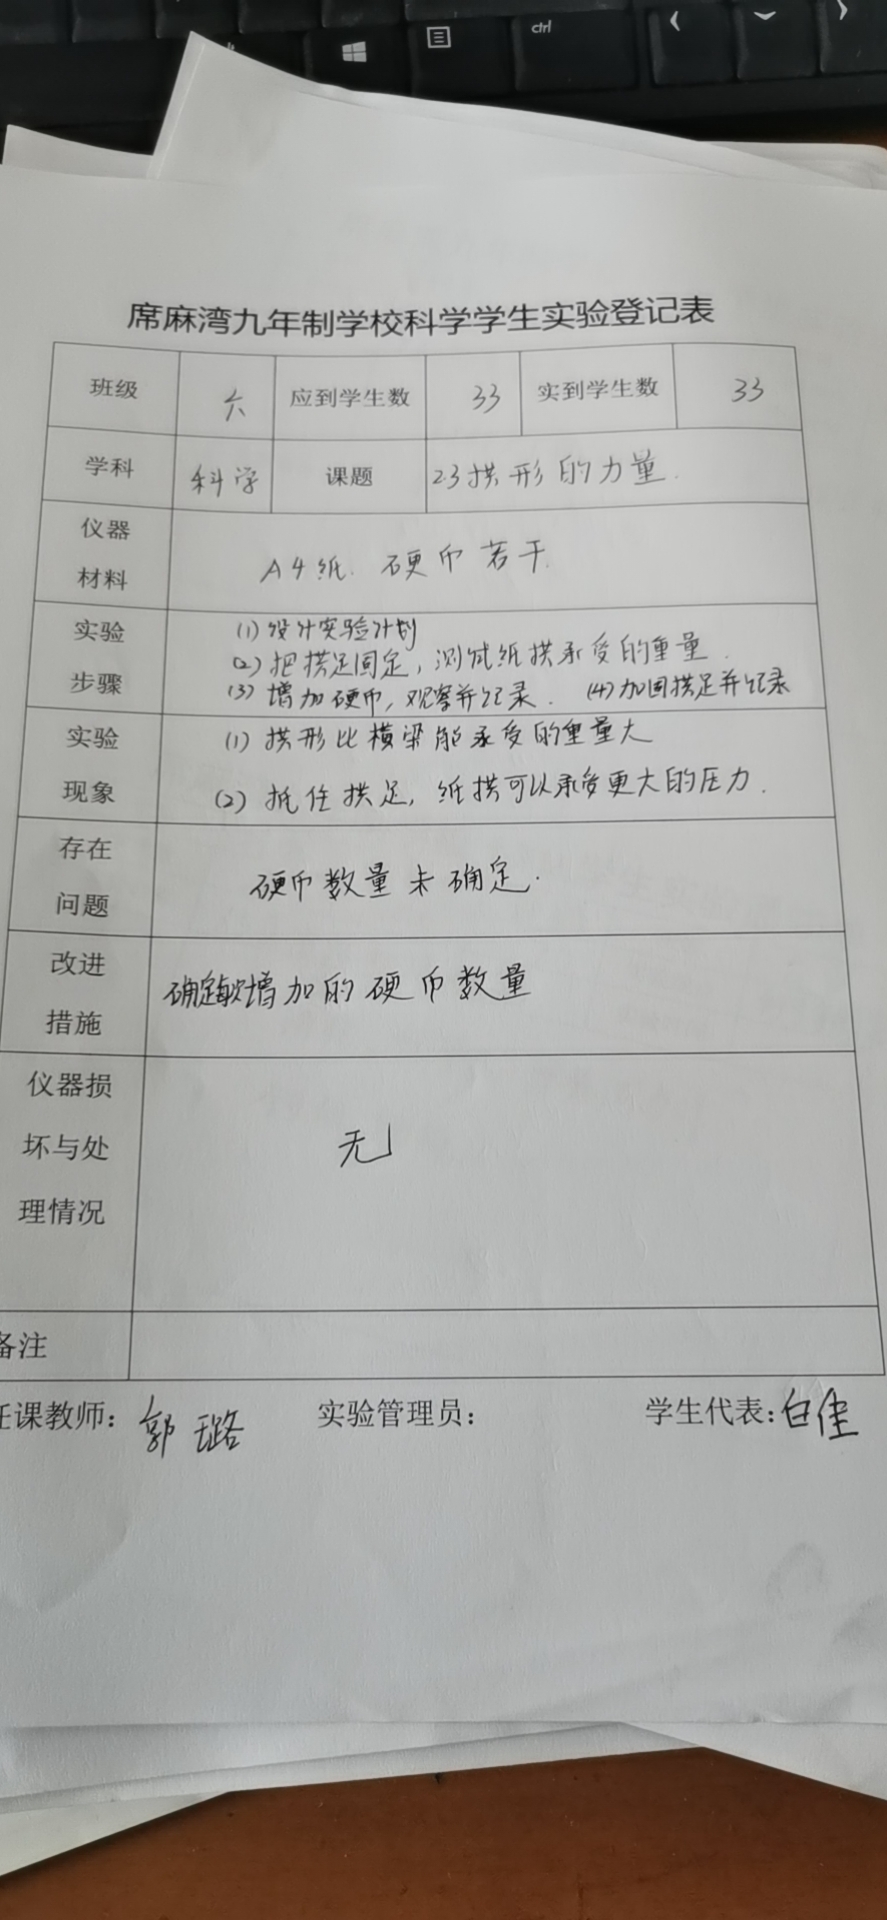 ctrl
席麻湾九年制学校科学学生实验登记表
班级 六 应到学生数 33 实到学生数 33
学科 科学 课题 2.3拱形的力量.
仪器材料 A4纸. 硬币若干.
实验步骤 (1)设计实验计划
(2)把拱足固定,测试纸拱承受的重量.
(3)增加硬币,观察并记录. (4)加固拱足并记录
实验现象 (1)拱形比横梁能承受的重量大
(2)抵住拱足,纸拱可以承受更大的压力.
存在问题 硬币数量未确定.
改进措施 确定每次增加的硬币数量
仪器损坏与处理情况 无
备注
任课教师: 郭璐 实验管理员: 学生代表:白佳